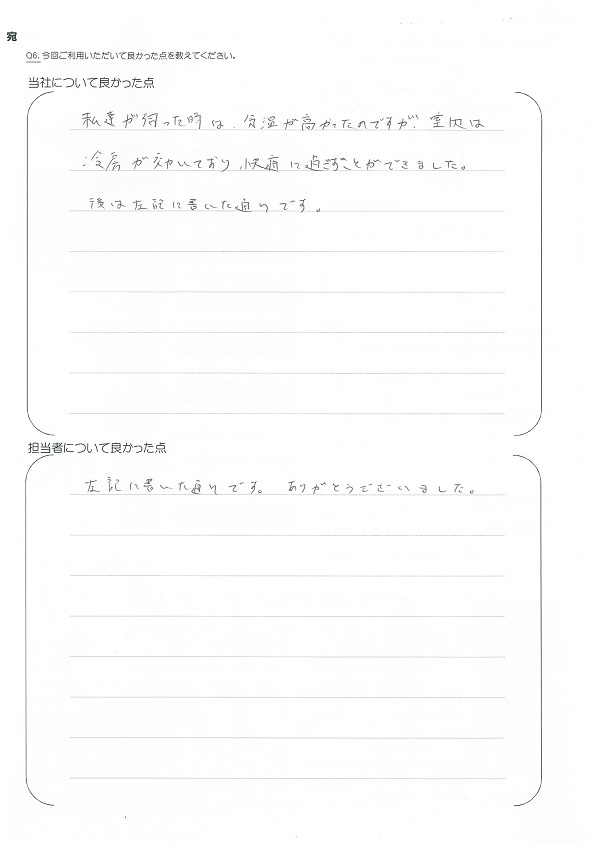 宛
Q6. 今回ご利用いただいて良かった点を教えてください。
当社について良かった点
私達が伺った時は、気温が高かったのですが、室内は
冷房が効いており、快適に過ごすことができました。
後は左記に書いた通りです。
担当者について良かった点
左記に書いた通りです。 ありがとうございました。